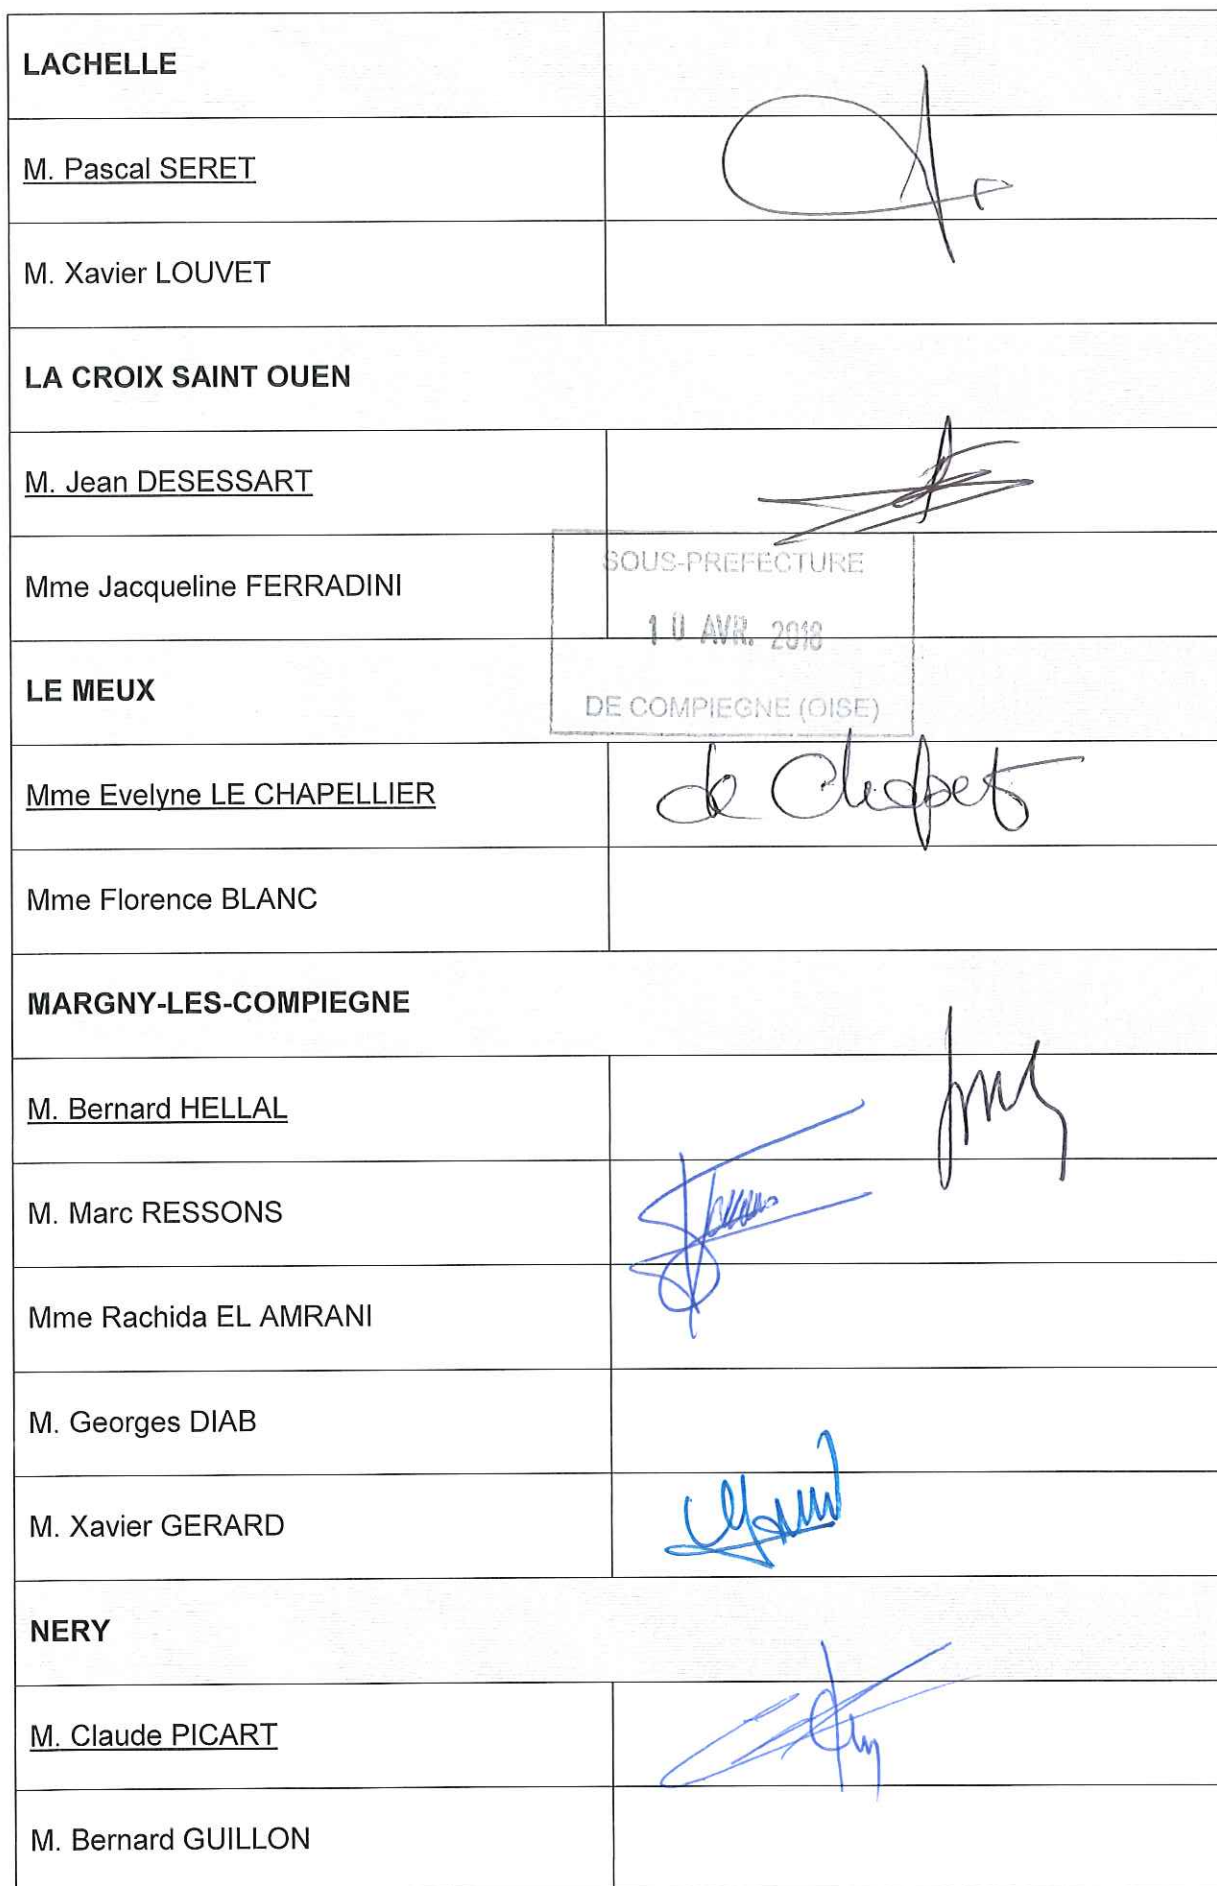 LACHELLE
M. Pascal SERET
M. Xavier LOUVET
LA CROIX SAINT OUEN
M. Jean DESESSART
SOUS-PREFECTURE
Mme Jacqueline FERRADINI
10 AVR. 2018
LE MEUX
DE COMPIEGNE (OISE)
Mme Evelyne LE CHAPELLIER
Mme Florence BLANC
MARGNY-LES-COMPIEGNE
M. Bernard HELLAL
M. Marc RESSONS
Mme Rachida EL AMRANI
M. Georges DIAB
M. Xavier GERARD
NERY
M. Claude PICART
M. Bernard GUILLON